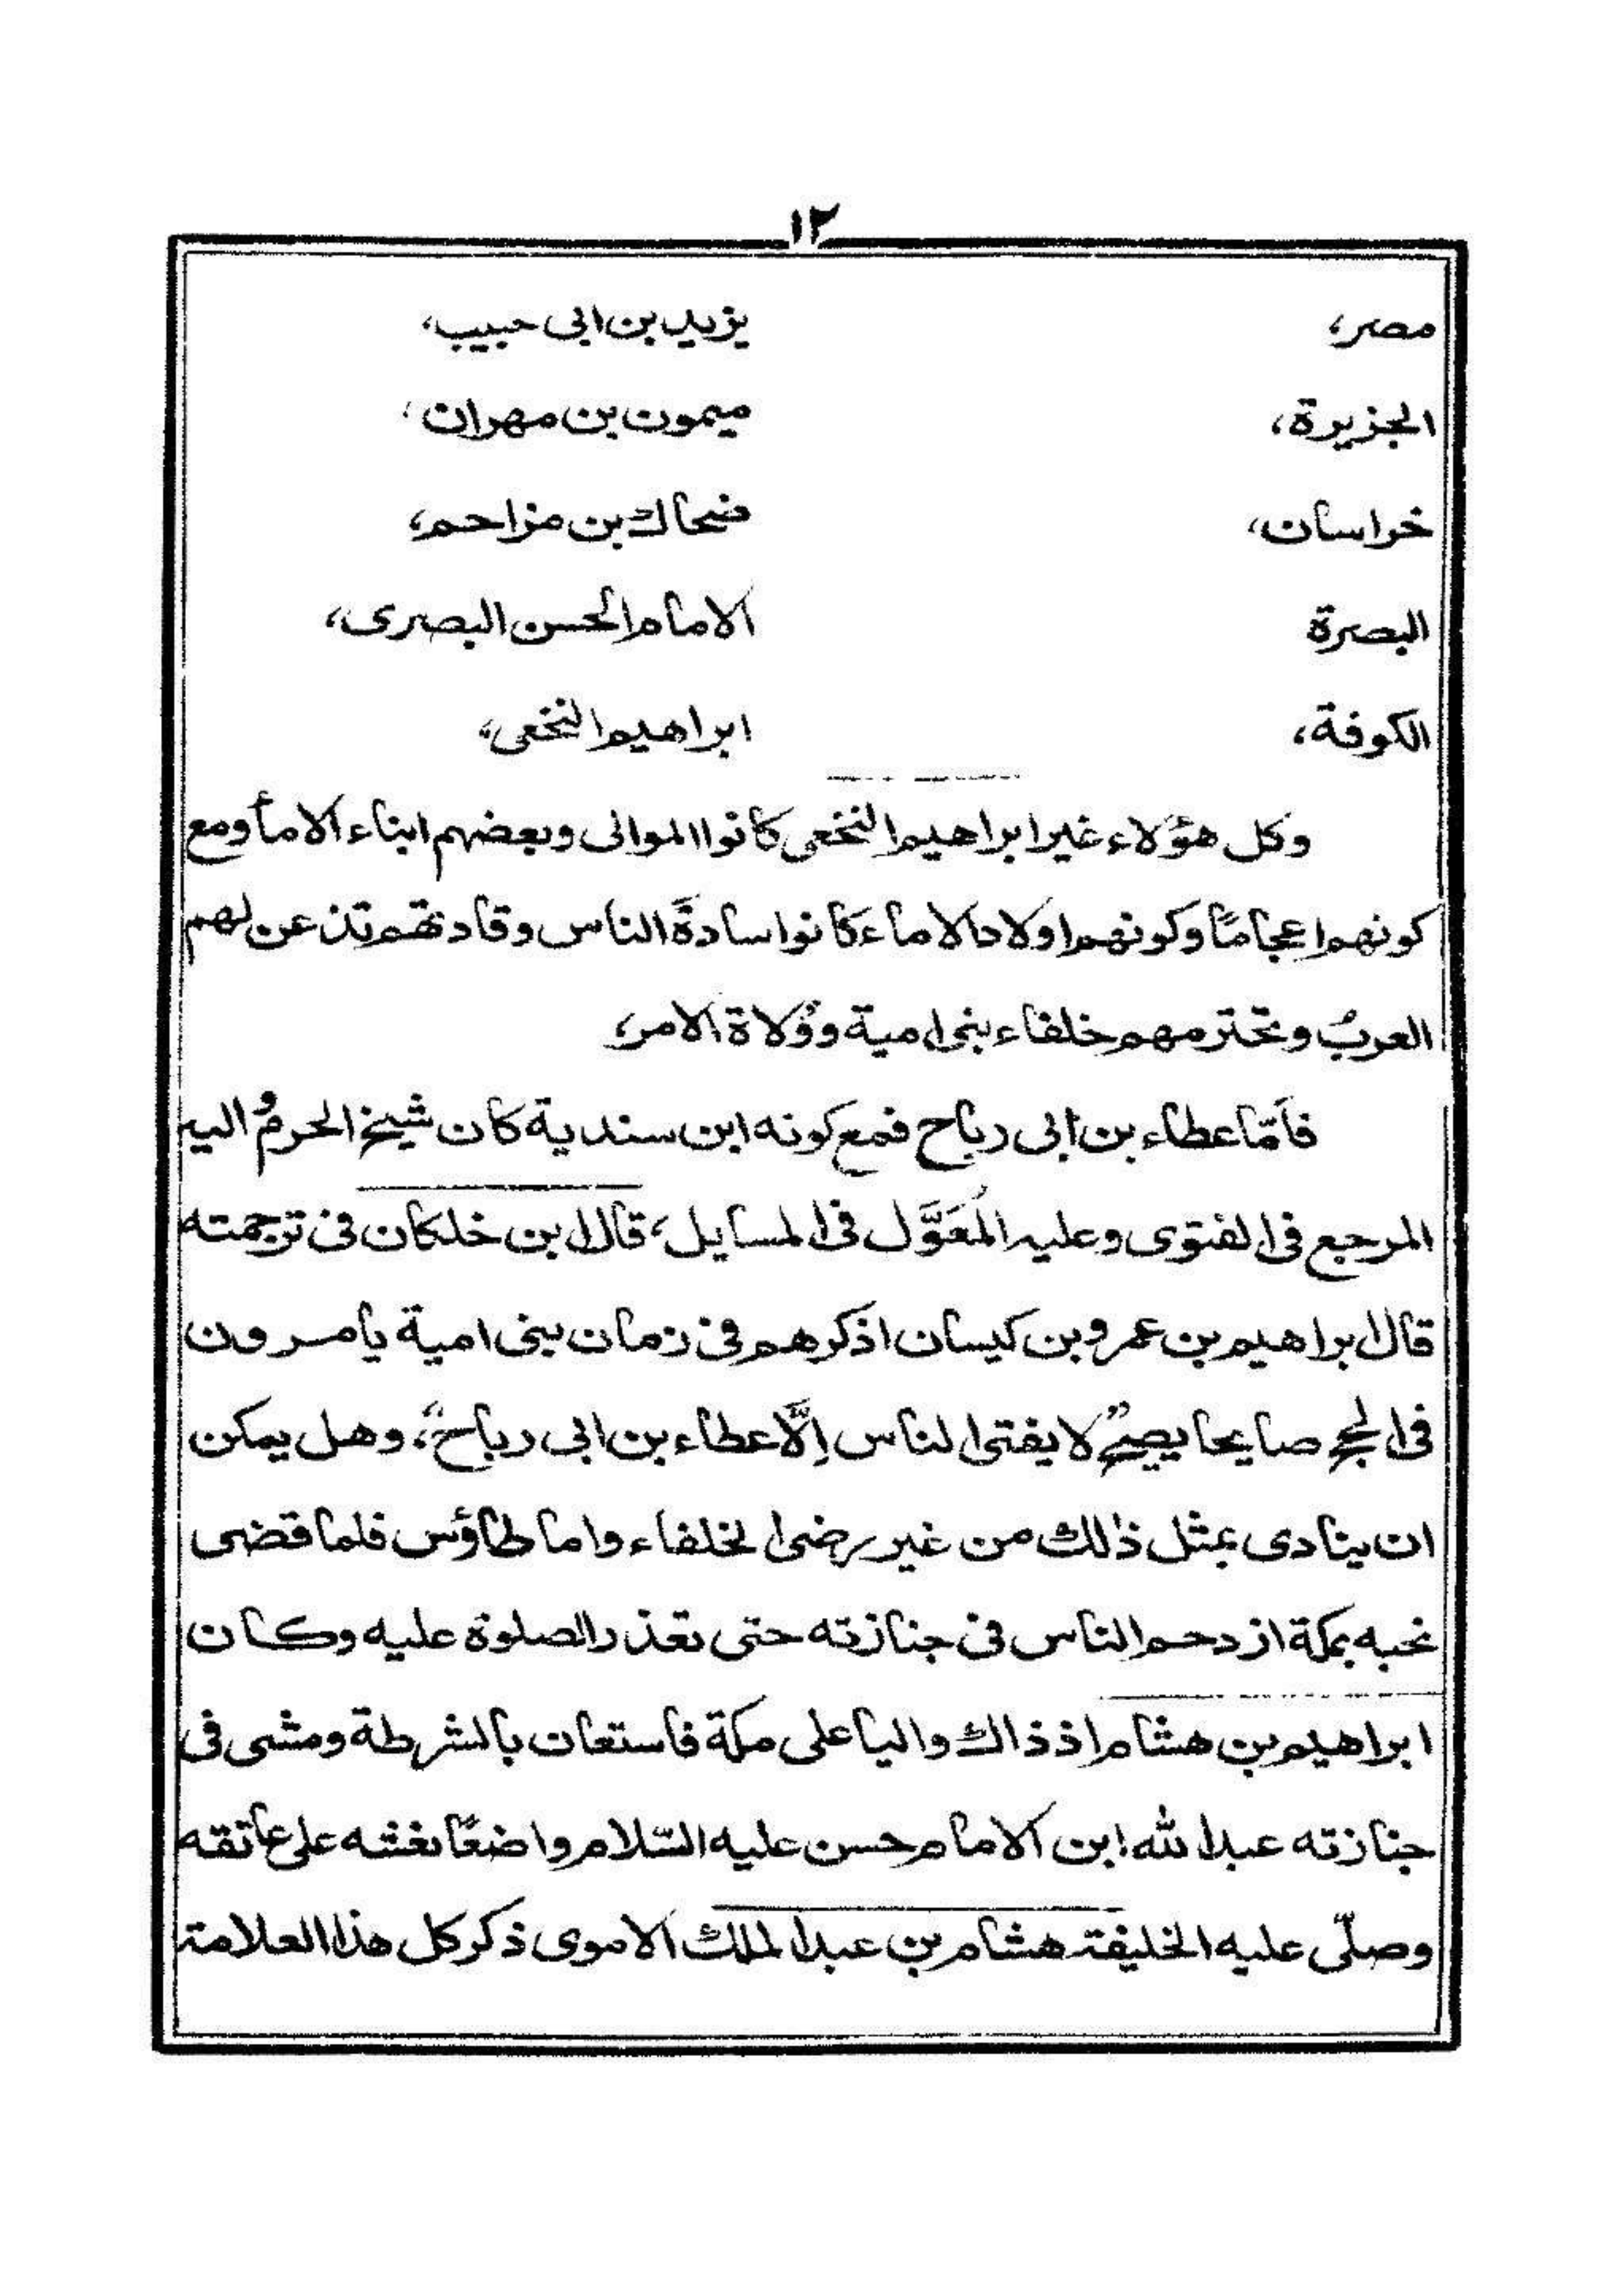 ١٢
مصر، يزيد بن ابى حبيب،
الجزيرة، ميمون بن مهران،
خراسان، ضحاك بن مزاحم،
البصرة الامام الحسن البصرى،
الكوفة، ابراهيم النخعى،
وكل هؤلاء غير ابراهيم النخعى كانوا الموالى وبعضهم ابناء الاماء ومع
كونهم اعجامًا وكونهم اولاد الاماء كانوا سادةَ الناس وقادتهم تذعن لهم
العربُ وتحترمهم خلفاء بنى امية ووُلاة الامر،
فأمّا عطاء بن ابى رباح فمع كونه ابن سندية كان شيخ الحرم واليه
المرجع فى الفتوى وعليه المُعَوَّل فى المسايل، قال ابن خلكان فى ترجمته
قال ابراهيم بن عمرو بن كيسان اذكرهم فى زمان بنى امية يأمرون
فى الحج صايحا يصيح "لا يفتى الناس اِلّا عطاء بن ابى رباح"، وهل يمكن
ان ينادى بمثل ذٰلك من غير رضى الخلفاء واما طاؤس فلما قضى
نحبه بمكة ازدحم الناس فى جنازته حتى تعذر الصلوة عليه وكان
ابراهيم بن هشام اذ ذاك واليا على مكة فاستعان بالشرطة ومشى فى
جنازته عبد الله ابن الامام حسن عليه السّلام واضعًا نعشه على عاتقه
وصلّى عليه الخليفة هشام بن عبد الملك الاموى ذكر كل هذا العلامة